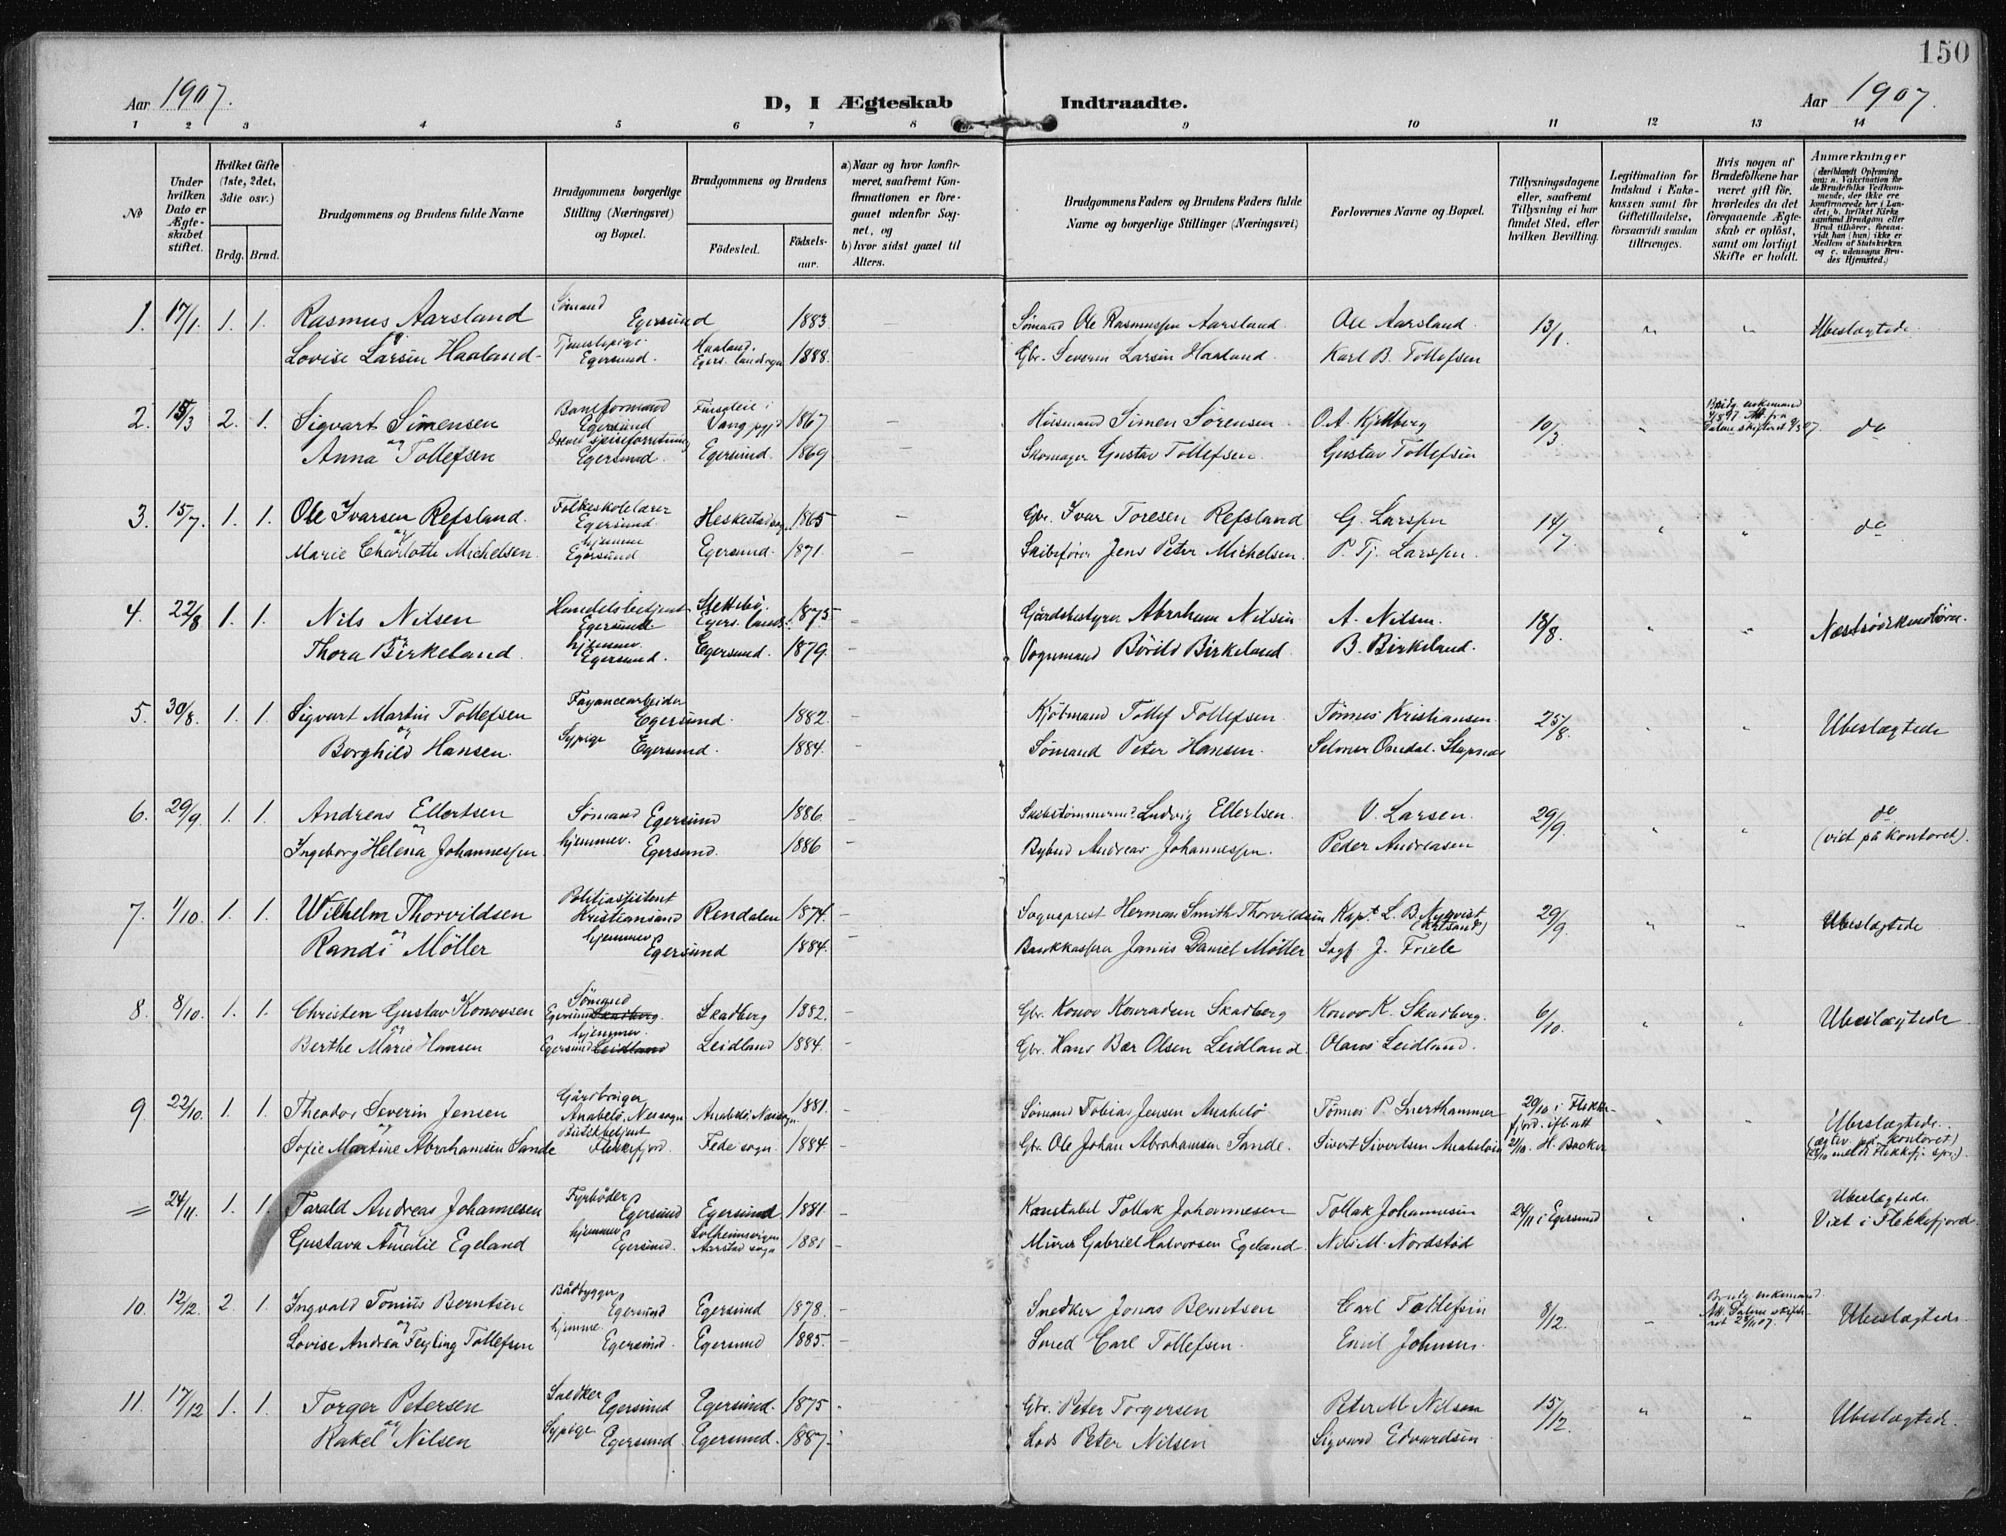 150
Aar 1907.
D, I Ægteskab Indtraadte.
Aar 1907.
1 2 3 4 5 6 7 8 9 10 11 12 13 14
№
Under hvilken Dato er Ægteskabet stiftet.
Hvilket Gifte (1ste, 2det, 3die osv.)
Brdg. Brud.
Brudgommens og Brudens fulde Navne
Brudgommens borgerlige Stilling (Næringsvei) og Bopæl.
Brudgommens og Brudens
Fødested.
Fødsels-aar.
a) Naar og hvor konfirmeret, saafremt Konfirmationen er foregaaet udenfor Sognet, og
b) hvor sidst gaaet til Alters.
Brudgommens Faders og Brudens Faders fulde Navne og borgerlige Stillinger (Næringsvei)
Forlovernes Navne og Bopæl.
Tillysningsdagene eller, saafremt Tillysning ei har fundet Sted, efter hvilken Bevilling.
Legitimation for Indskud i Enkekassen samt for Giftetilladelse, forsaavidt saadan tiltrænges.
Hvis nogen af Brudefolkene har været gift før, hvorledes da det foregaaende Ægteskab er opløst, samt om lovligt Skifte er holdt.
Anmærkninger (deriblandt Oplysning om: a. Vakcination for de Brudefolks Vedkommende, der ikke ere konfirmerede her i Landet; b. hvilket Kirkesamfund Brudgom eller Brud tilhører, forsaavidt han (hun) ikke er Medlem af Statskirken og c. udensogns Brudes Hjemsted.)
1. 17/1. 1. 1. Rasmus Aarsland Sømand Egersund 1883 – Sømand Ole Rasmussen Aarsland. Ole Aarsland. 13/1. " " Ubeslægtede.
og
Lovise Larsen Haaland Tjenestepige. Egersund. Haaland. Egers. landsogn 1888. Gbr. Severin Larsen Haaland. Karl B. Tollefsen
2. 15/3 2. 1. Sigvart Simensen Baneformand Egersund Vang 1867 – Husmand Simen Sørensen 10/3. " Brudg. enkemand do
og
Anna Tollefsen Egersund. Egersund. 1869 – Skomager Gustav Tollefsen. Gustav Tollefsen
3. 15/7. 1. 1. Ole Ivarsen Refsland. Folkeskolelærer Egersund. Heskestad sogn 1865 – Gbr. Ivar Toresen Refsland G. Larsen 14/7. " " do
og
Marie Charlotte Michelsen. hjemme Egersund Egersund. 1871. – Skibsfører Jens Peter Michelsen. P. Tj. Larssen.
4. 22/8 1. 1. Nils Nilsen Handelsbetjent Egersund. Slettebø. Egers. lands. 1875 – Gårdsbestyrer Abraham Nilsen A. Nilsen. 18/8. " " Næstsødskendbørn.
og
Thora Birkeland. hjemmev. Egersund. Egersund. 1879. Vognmand Bårild Birkeland B. Birkeland.
5. 30/8. 1. 1. Sigvart Martin Tollefsen Fayancearbeider Egersund. 1882. – Kjøbmand Tollef Tollefsen. Tønnes Kristiansen. 25/8. " " Ubeslægtede
og
Borghild Hansen. Sypige Egersund. 1884. – Sømand Peter Hansen.
6. 29/9. 1. 1. Andreas Ellertsen Sømand Egersund 1886. – Ludvig Ellertsen. V. Larsen. 29/9. " " do
og
Ingeborg Helena Johannessen hjemmev. Egersund. 1886 – Bybud Andreas Johannessen. Peder Andreasen (viet på kontoret).
7. 1/10. 1. 1. Wilhelm Thorvildsen Politiassistent Kristianssand Rendalen 1874. – Sogneprest Herman Smith Thorvildsen Kapt. L. B. Nyqvist (Krlsand) 29/9. " " Ubeslægtede
og
Randi Möller hjemmev. Egersund 1884. – Bankkasserer Janus Daniel Möller Sagf. J. Friele
8. 8/10. 1. 1. Christen Gustav Konovsen Sømand Egersund Skadberg. Skadberg 1882. – Gbr. Konov Konradsen Skadberg Konov K. Skadberg. 6/10. " " Ubeslægtede
og
Berthe Marie Hansen hjemmev. Egersund Leidland Leidland 1884. – Gbr. Hans Bær Olsen Leidland. Olaus Leidland.
9. 22/10. 1. 1. Theodor Severin Jensen Gårdbruger Anabelø, Nessogn Anabelø Nessogn. 1881. – Sømand Tobias Jensen Anabelø Tønnes P. 20/10 i Flekkefjord. ifl. att " " Ubeslægtede.
og
Sofie Martine Abrahamsen Sande Butikbetjent Flekkefjord. Fede sogn. 1884. – Gbr. Ole Johan Abrahamsen Sande. Sivert Sivertsen Anabelø 21/10. H. Backer (ægtev. på kontoret)
= 24/11. 1. 1. Tarald Andreas Johannesen Fyrbøder Egersund Egersund 1881 – Konstabel Tollak Johannesen Tollak Johannesen 24/11 i Egersund " " Ubeslægtede.
og
Gustava Amalie Egeland hjemmev Egersund. Aarstad sogn 1881 – Murer Gabriel Halvorsen Egeland. Nils M. Nordstød Viet i Flekkefjord.
10. 12/12. 2. 1. Ingvald Tonius Berntsen Bådbygger Egersund Egersund 1878. – Snedker Jonas Berntsen Carl Tollefsen 8/12. – Brudg. enkemand. Ubeslægtede.
og
Lovise Andrea Feyling Tollefsen hjemme. Egersund. Egersund 1885. – Smed Carl Tollefsen. Emil Johnsen.
11. 17/12 1. 1. Torger Petersen Snedker Egersund Egersund. 1875. Gbr. Peter Torgersen Peter M. Nilsen 15/12. " " Ubeslægtede.
og
Rakel Nilsen Sypige Egersund. Egersund. 1887. Lods Peter Nilsen Sigvard Edvardsen